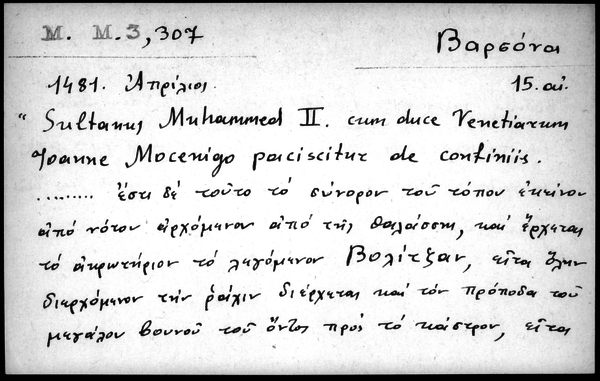 M. M. 3, 307
Βαρσόνα
1481. Ἀπρίλιος.
15. αἰ.
"Sultanus Muhammed II. cum duce Venetiarum
Joanne Mocenigo paciscitur de confiniis.
......... ἔστι δέ τοῦτο τό σύνορον τοῦ τόπου ἐκείνου
ἀπό νότου ἀρχόμενον ἀπό τῆς θαλάσσης, καί ἔρχεται
τό ἀκρωτήριον τό λεγόμενον Βολίτζαν, εἶτα ὅλην
διερχόμενον τήν ῥάχιν διέρχεται καί τόν πρόποδα τοῦ
μεγάλου βουνοῦ τοῦ ὄντος πρός τό κάστρον, εἶτα